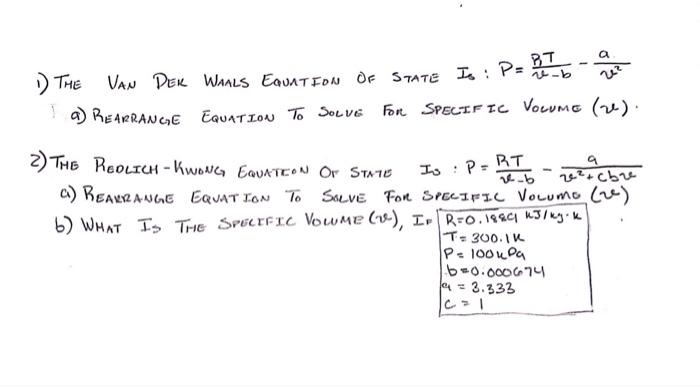 1) THE VAN DER WAALS EQUATION OF STATE IS : P = RT/v-b - a/v²
a) REARRANGE EQUATION TO SOLVE FOR SPECIFIC VOLUME (v).
2) THE REDLICH-KWONG EQUATION OF STATE IS : P = RT/v-b - a/v²+cbv
a) REARRANGE EQUATION TO SOLVE FOR SPECIFIC VOLUME (v)
b) WHAT IS THE SPECIFIC VOLUME (v), IF R=0.1889 kJ/kg·K
T=300.1K
P=100kPa
b=0.000674
a=3.333
c=1